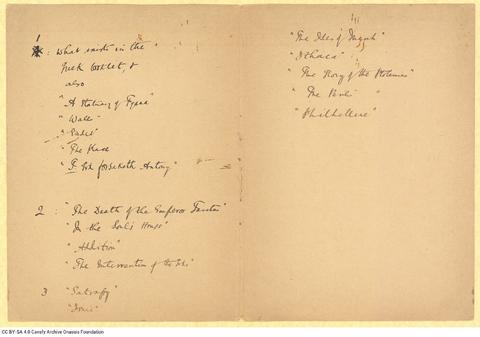 1
: What exists in the
Greek booklet, &
also
"A Statuary of Tyana"
"Walls"
"The Place
"The God forsaketh Antony"
2 : "The Death of the Emperor Tacitus"
"In the Soul's House"
"Addition"
"The Intervention of the Gods"
3 "Satrapy"
"Ionic"
"The Ides of March"
"Ithaca"
"The Glory of the Ptolemies"
"The Perils"
"Philhellene"
CC BY-SA 4.0 Cavafy Archive Onassis Foundation